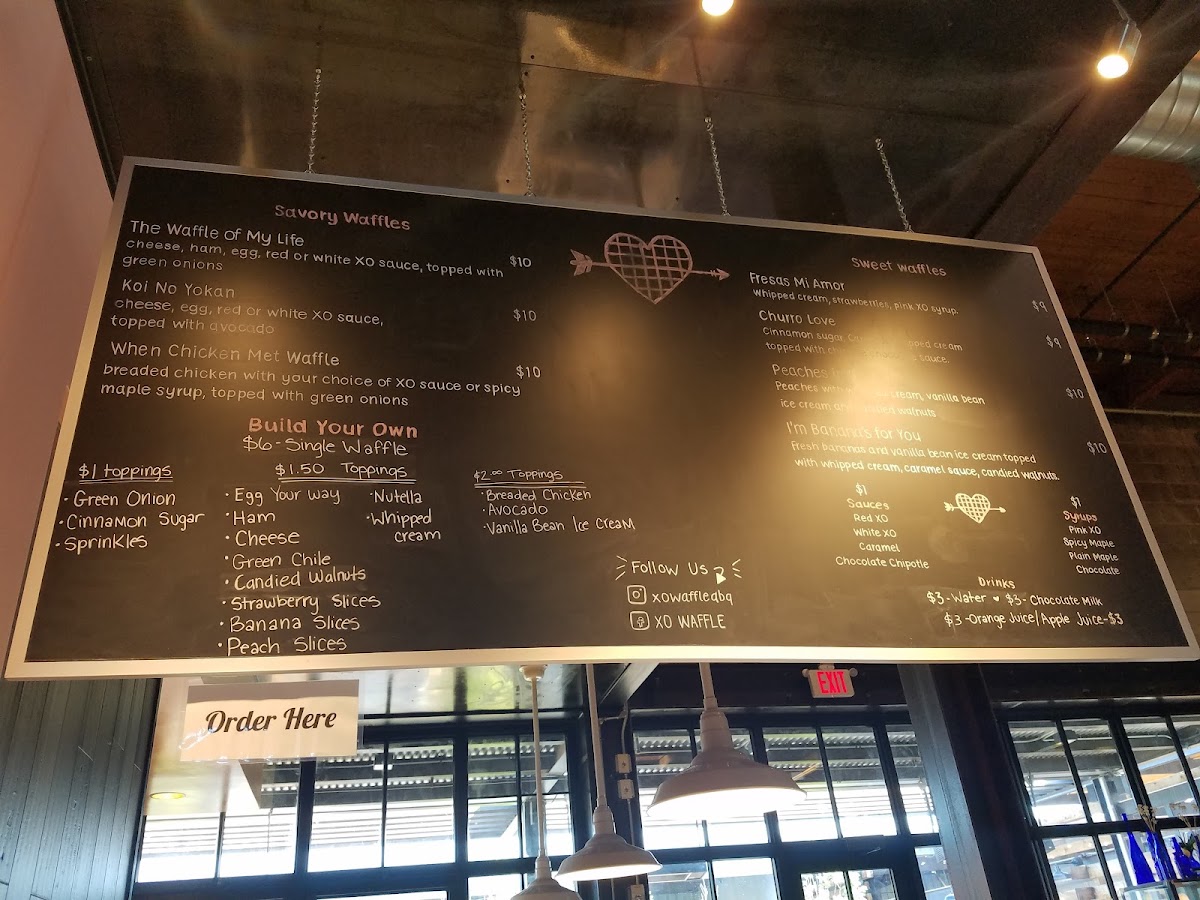 Savory Waffles
The Waffle of My Life
cheese, ham, egg, red or white XO sauce, topped with
green onions
$10
Koi No Yokan
cheese, egg, red or white XO sauce,
topped with avocado
$10
When Chicken Met Waffle
breaded chicken with your choice of XO sauce or spicy
maple syrup, topped with green onions
$10
Build Your Own
$6-Single Waffle
$1 toppings
· Green Onion
· Cinnamon Sugar
· Sprinkles
$1.50 Toppings
· Egg Your way
· Ham
· Cheese
· Green Chile
· Candied Walnuts
· Strawberry Slices
· Banana Slices
· Peach Slices
· Nutella
· Whipped
cream
$2.00 Toppings
· Breaded Chicken
· Avocado
· Vanilla Bean Ice Cream
Follow Us
xowaffleabq
XO WAFFLE
Sweet waffles
Fresas Mi Amor
Whipped cream, strawberries, pink XO syrup.
$9
Churro Love
Cinnamon sugar, cream
topped with sauce.
$9
Peaches
Peaches with cream, vanilla bean
ice cream and walnuts
$10
I'm Banana's for You
Fresh bananas and vanilla bean ice cream topped
with whipped cream, caramel sauce, candied walnuts.
$10
$1
Sauces
Red XO
White XO
Caramel
Chocolate Chipotle
$1
Syrups
Pink XO
Spicy Maple
Plain Maple
Chocolate
Drinks
$3-Water ♥ $3-Chocolate Milk
$3-Orange Juice/Apple Juice-$3
Order Here
EXIT